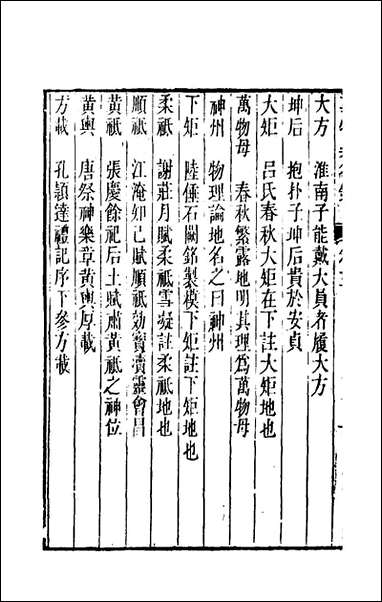 大方　淮南子能戴大員者履大方
坤后　抱扑子坤后貴於安貞
大矩　呂氏春秋大矩在下註大矩地也
萬物母　春秋繁露地明其理爲萬物母
神州　物理論地名之曰神州
下矩　陸倕石闕銘製模下矩註下矩地也
柔祇　謝莊月賦柔祇雪凝註柔祇地也
順祇　江淹知己賦順祇効寶賣靈會昌
黃祇　張慶餘祀后土賦肅黃祇之神位
黃輿　唐祭神樂章黃輿厚載
方載　孔頴達禮記序下參方載